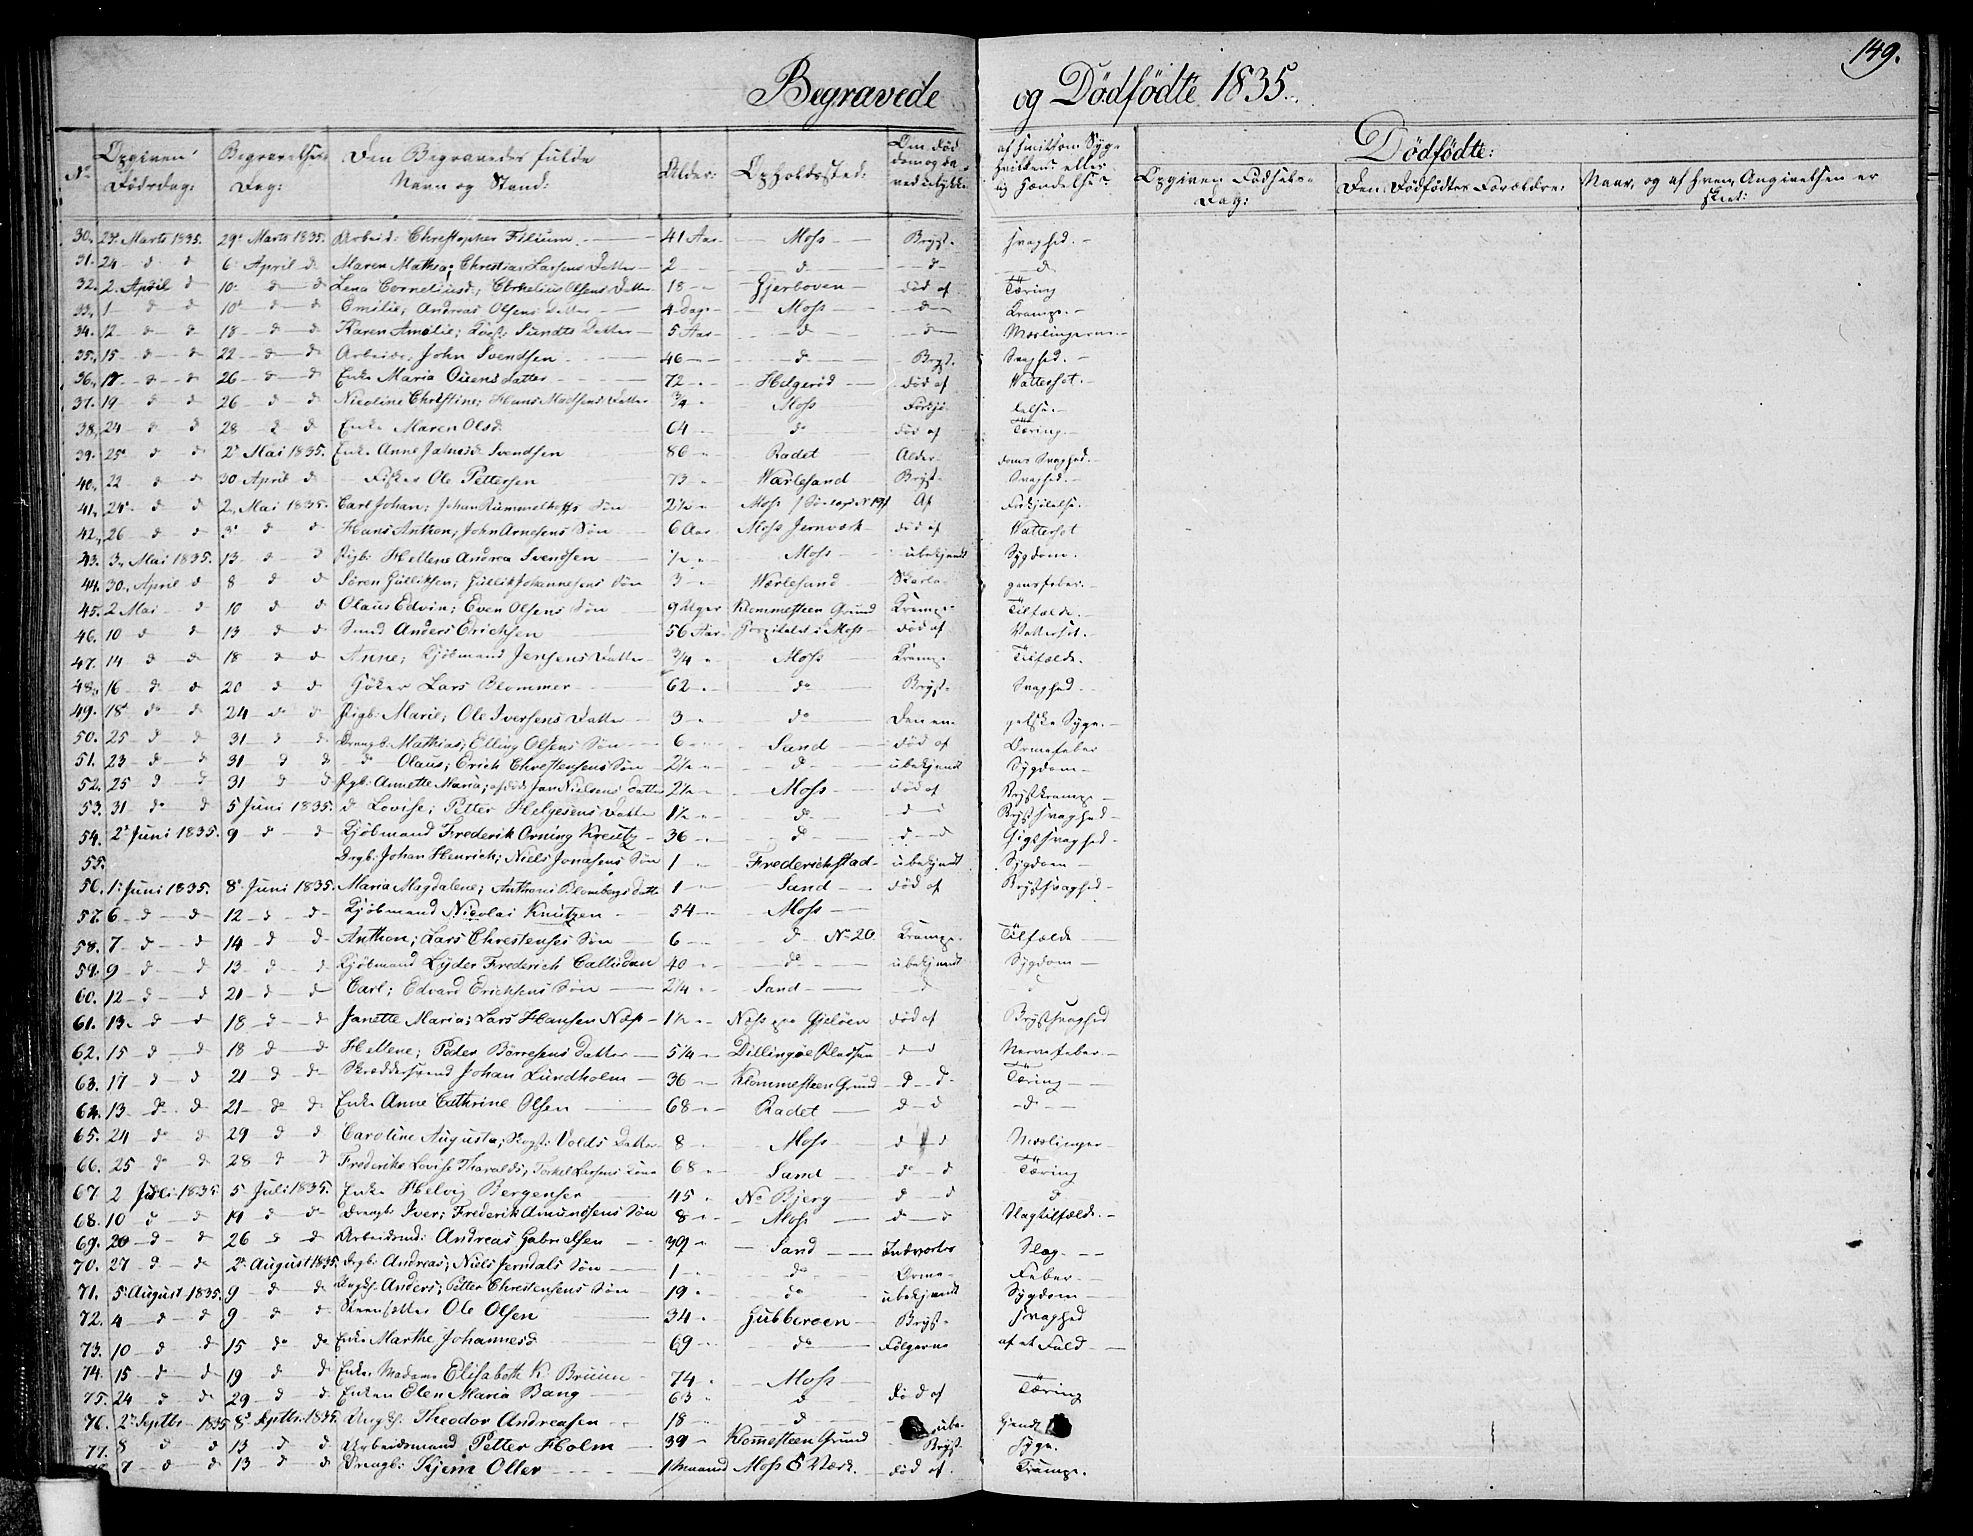 149.
Begravede og Dödfödte 1835.
No Opgiven Dödsdag: Begravelses Dag: Den Begravedes fulde Navn og Stand: Alder: Opholdssted:
Dödfödte:
Opgiven Födsels Dag: Den Dödfödtes Forældre: Naar, og af hvem, Angivelsen er skeet:
30. 23. Marts 1835. 29. Marts 1835. Arbeid: Christopher Filium. 41 Aar Moss Bryst- svaghed.
31. 24 d d 6 April d Maren Mathea; Christian Larsens Datter 2 d d d
32. 2. April d 10 d d Lena Corneliusd; Cornelius Olsens Datter 18 Gjerboven död af Tæring
33. 1 d d 10 d d Emilie; Andreas Olsens Datter 4 Dage Moss d Krampe.
34. 12 d d 18 d d Karen Amalie; Sundts Datter 5 Aar d d Mæslingerne.
35. 15 d d 22 d d Arbeid: John Svendsen 46 d Bryst- Svaghed.
36. d d 26 d d Enke Maria Datter 72 Helgeröd död af Vattersot.
37. 19 d d 26 d d Nicoline Christine; Hans Madsens Datter 3/4 Moss Forkjö- lelse.
38. 24 d d 28 d d Enke Maren Olsd. 64 do död af Tæring.
39. 25 d d 2 Mai 1835. Enke Anne Svendsen 86 Radet Alder- doms Svaghed.
40. 22 d d 30 April d Fisker Ole Pettersen 73 Værlesand Bryst- Svaghed.
41. 24 d d 2. Mai 1835. Carl Johan; Johan Rummelhoffs Sön 2 1/2 Moss Af Forkjölelse.
42. 26 d d 3 d d Hans Anthon; John Arnesens Sön 6 Aar Moss Jernværk död af Vattersot
43. 3. Mai 1835. 13 d d Pigb: Hellene Andrea Svendsen 1/2 Moss ubekjendt Sygdom.
44. 30. April d 8 d d Sören Gulliksen; Gullik Johannesens Sön 3 Værlesand Skarla- gensfeber.
45. 2 Mai d 10 d d Olaus Edvin; Even Olsens Sön 9 Uger Klommesteen Grund Krampe- Tilfælde.
46. 10 d d 13 d d Smed Anders Erichsen 56 Aar Hospitalet i Moss död af Vattersot.
47. 14 d d 18 d d Anne; Kjöbmand Jensens Datter 3/4 Moss Krampe- Tilfælde.
48. 16 d d 20 d d Lars Blommer 62 do Bryst- Svaghed.
49. 18 do d 24 d d Pigb: Marie; Ole Iversens Datter 3 do Den en- gelske Syge.
50. 25 d d 31 d d Drengb: Mathias; Elling Olsens Sön 6 Sand död af Ormefeber
51. 23 d d 31 d d d Olaus; Erich Chrestensens Sön 2 1/2 d ubekjendt Sygdom
52. 25 d d 31 d d Pigb: Annette Maria; afdöde Jan Nielsens Datter 2 1/2 Moss död af Brystkrampe
53. 31 do d 5 Juni 1835. d Lovise; Petter Helgesens Datter 1 1/2 do d d Brystsvaghed
54. 2 Juni 1835. 9 d d Kjöbmand Frederik Orning Kreutz 36 d d d Gigtsvaghed
55. Drgb: Johan Henrich; Niels Jonasens Sön 1 Frederichstad ubekjendt Sygdom
56. 1. Juni 1835. 8. Juni 1835. Maria Magdalene; Anthoni Blombergs Datter 1 Sand död af Brystsvaghed
57. 6 d d 12 d d Kjöbmand Nicolai Knutzen 54 Moss
58. 7 d d 14 d d Anthon; Lars Chrestenses Sön 6 d No 20. Krampe- Tilfælde
59. 9 d d 13 d d Kjöbmand Lyder Frederich 40 do ubekjendt Sygdom
60. 12 d d 21 d d Carl; Edvard Erichsens Sön 2 1/4 Sand d d
61. 13 d d 18 d d Janette Maria; Lars Hansen Næss 1 1/2 Næss paa Gjelöen död af Brystsvaghed
62. 15 d d 18 d d Hellene; Peder Börresens Datter 5 1/4 Dillingöe Pladsen d d Nervefeber
63. 17 d d 21 d d Skreddersvend Johan Lundholm 36 Klommesteen Grund d d Tæring
64. 13 d d 21 do d Enke Anne Cathrine Olsen 68 Radet d d d
65. 24 do d 29 d d Caroline Augusta; Volds Datter 8 Moss d d Mæslinger
66. 25 do d 28 d d Frederike Lovise Tharalds; Torkel Larsens Kone 68 Sand do d Tæring
67. 2 Juli 1835. 5 Juli 1835. Enke Helvig Bergenser 45 No Bjerg d d d
68. 10 d d 19 d d Drengb: Iver; Frederik Amundsens Sön 8 Moss d d Slagtilfælde.
69. 20 d d 26 d d Arbeidsmd: Andreas Gabrielsen 39 Sand Indvortes Slag.
70. 27 d d 2. August 1835. Drgb: Andreas; Niels Jerndals Sön 1 do Orme- Feber
71. 5. August 1835. 9 d d Ungk. Anders; Petter Chrestensens Sön 19 do ubekjendt Sygdom
72. 4 d d 9 d d Ole Olsen 34 Gubberoen Bryst- svaghed
73. 10 d d 15 do do Enke Marthe Johannesd 69 do Fölgerne af et Fald
74. 15 d d 19 d d Enke Madame Elisabeth K. Bruun 74 Moss
75. 24 d d 29 d d Enken Elen Maria Bang 63 d död af Tæring
76. 2. Septbr. 1835 8. Septbr. 1835. Ungk. Theodor Andreasen 18 d ube- kjendt
77. 8 d d 13 d d Arbeidsmand Petter Holm 39 Klommesteen Grund Bryst- Syge.
7 d d 13 d d Drengb: Oller 1 Maaned Moss död af Krampe.